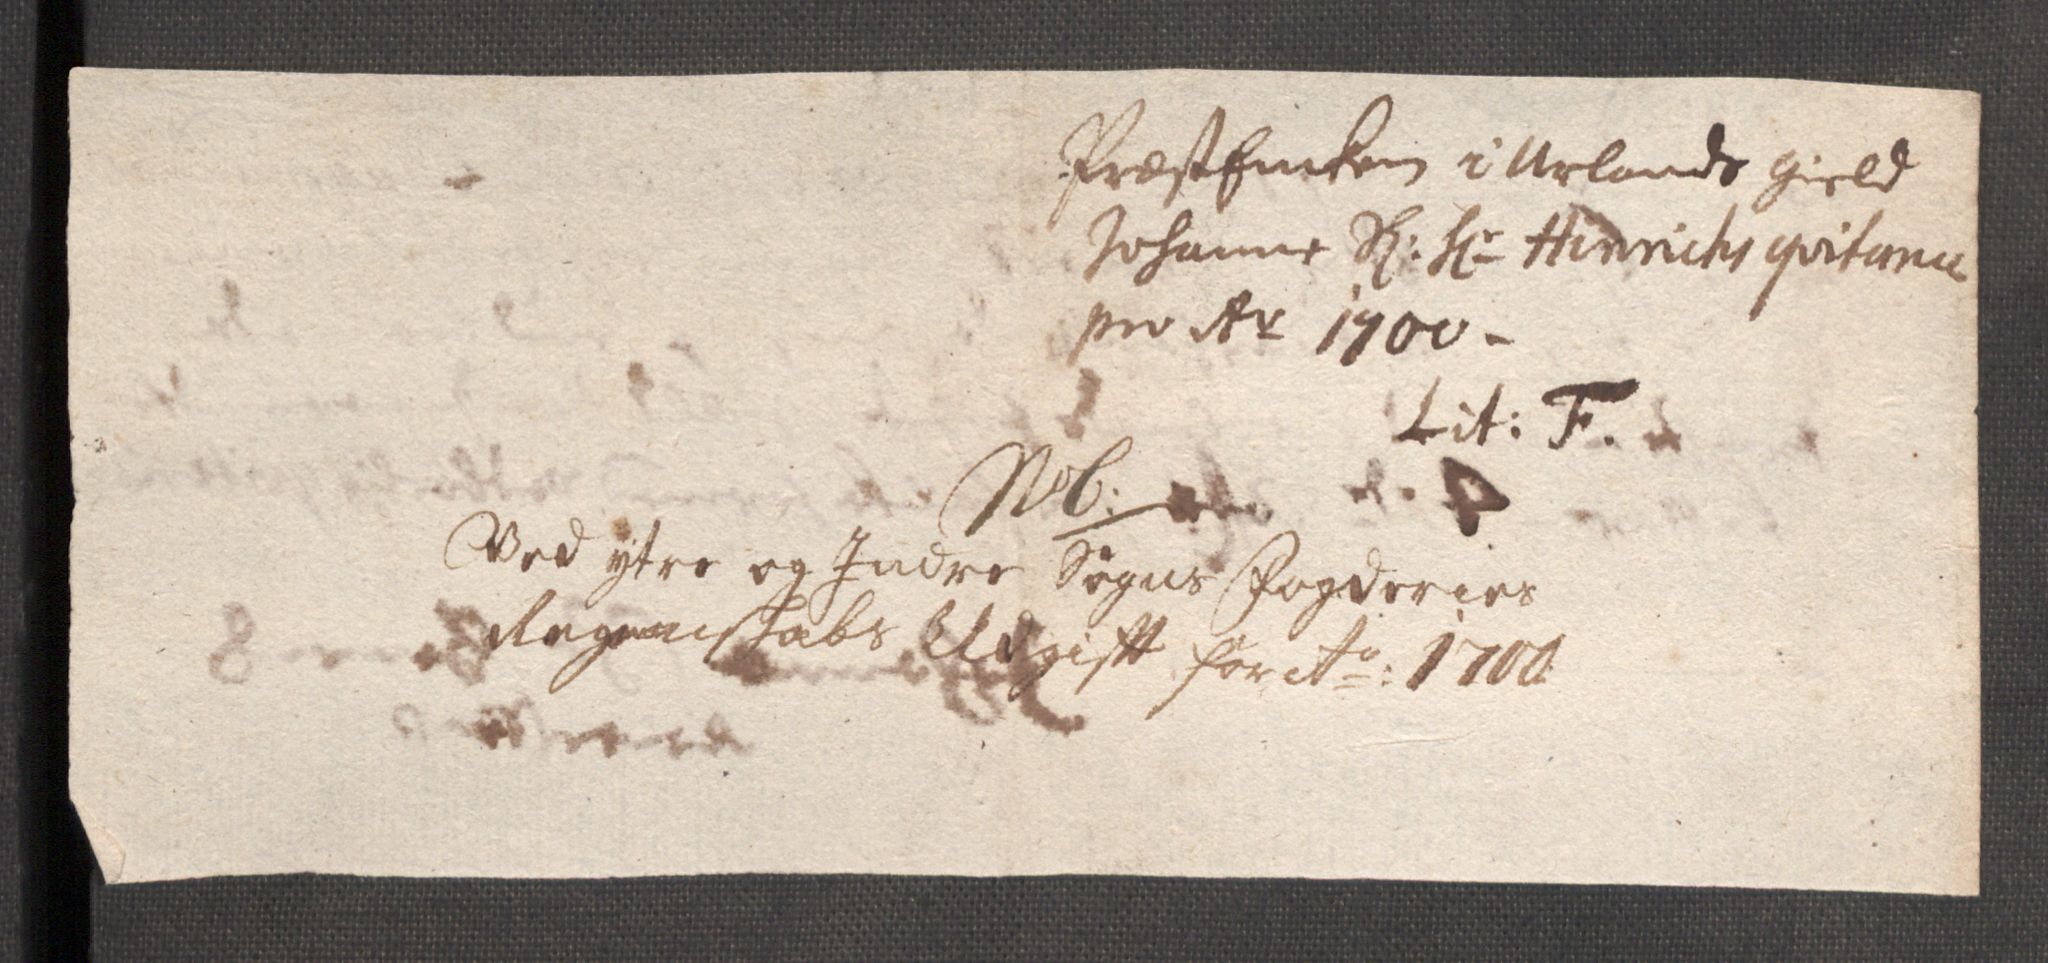 Præst Enken i Urlands gield
Johanne Sl: Hr Hinrichs qvitance
pro Ao 1700 -
Lit: F.
No 6:
Ved ytre og Indre Sogns Fogderies
Regenschabs Udgift for Ao: 1700